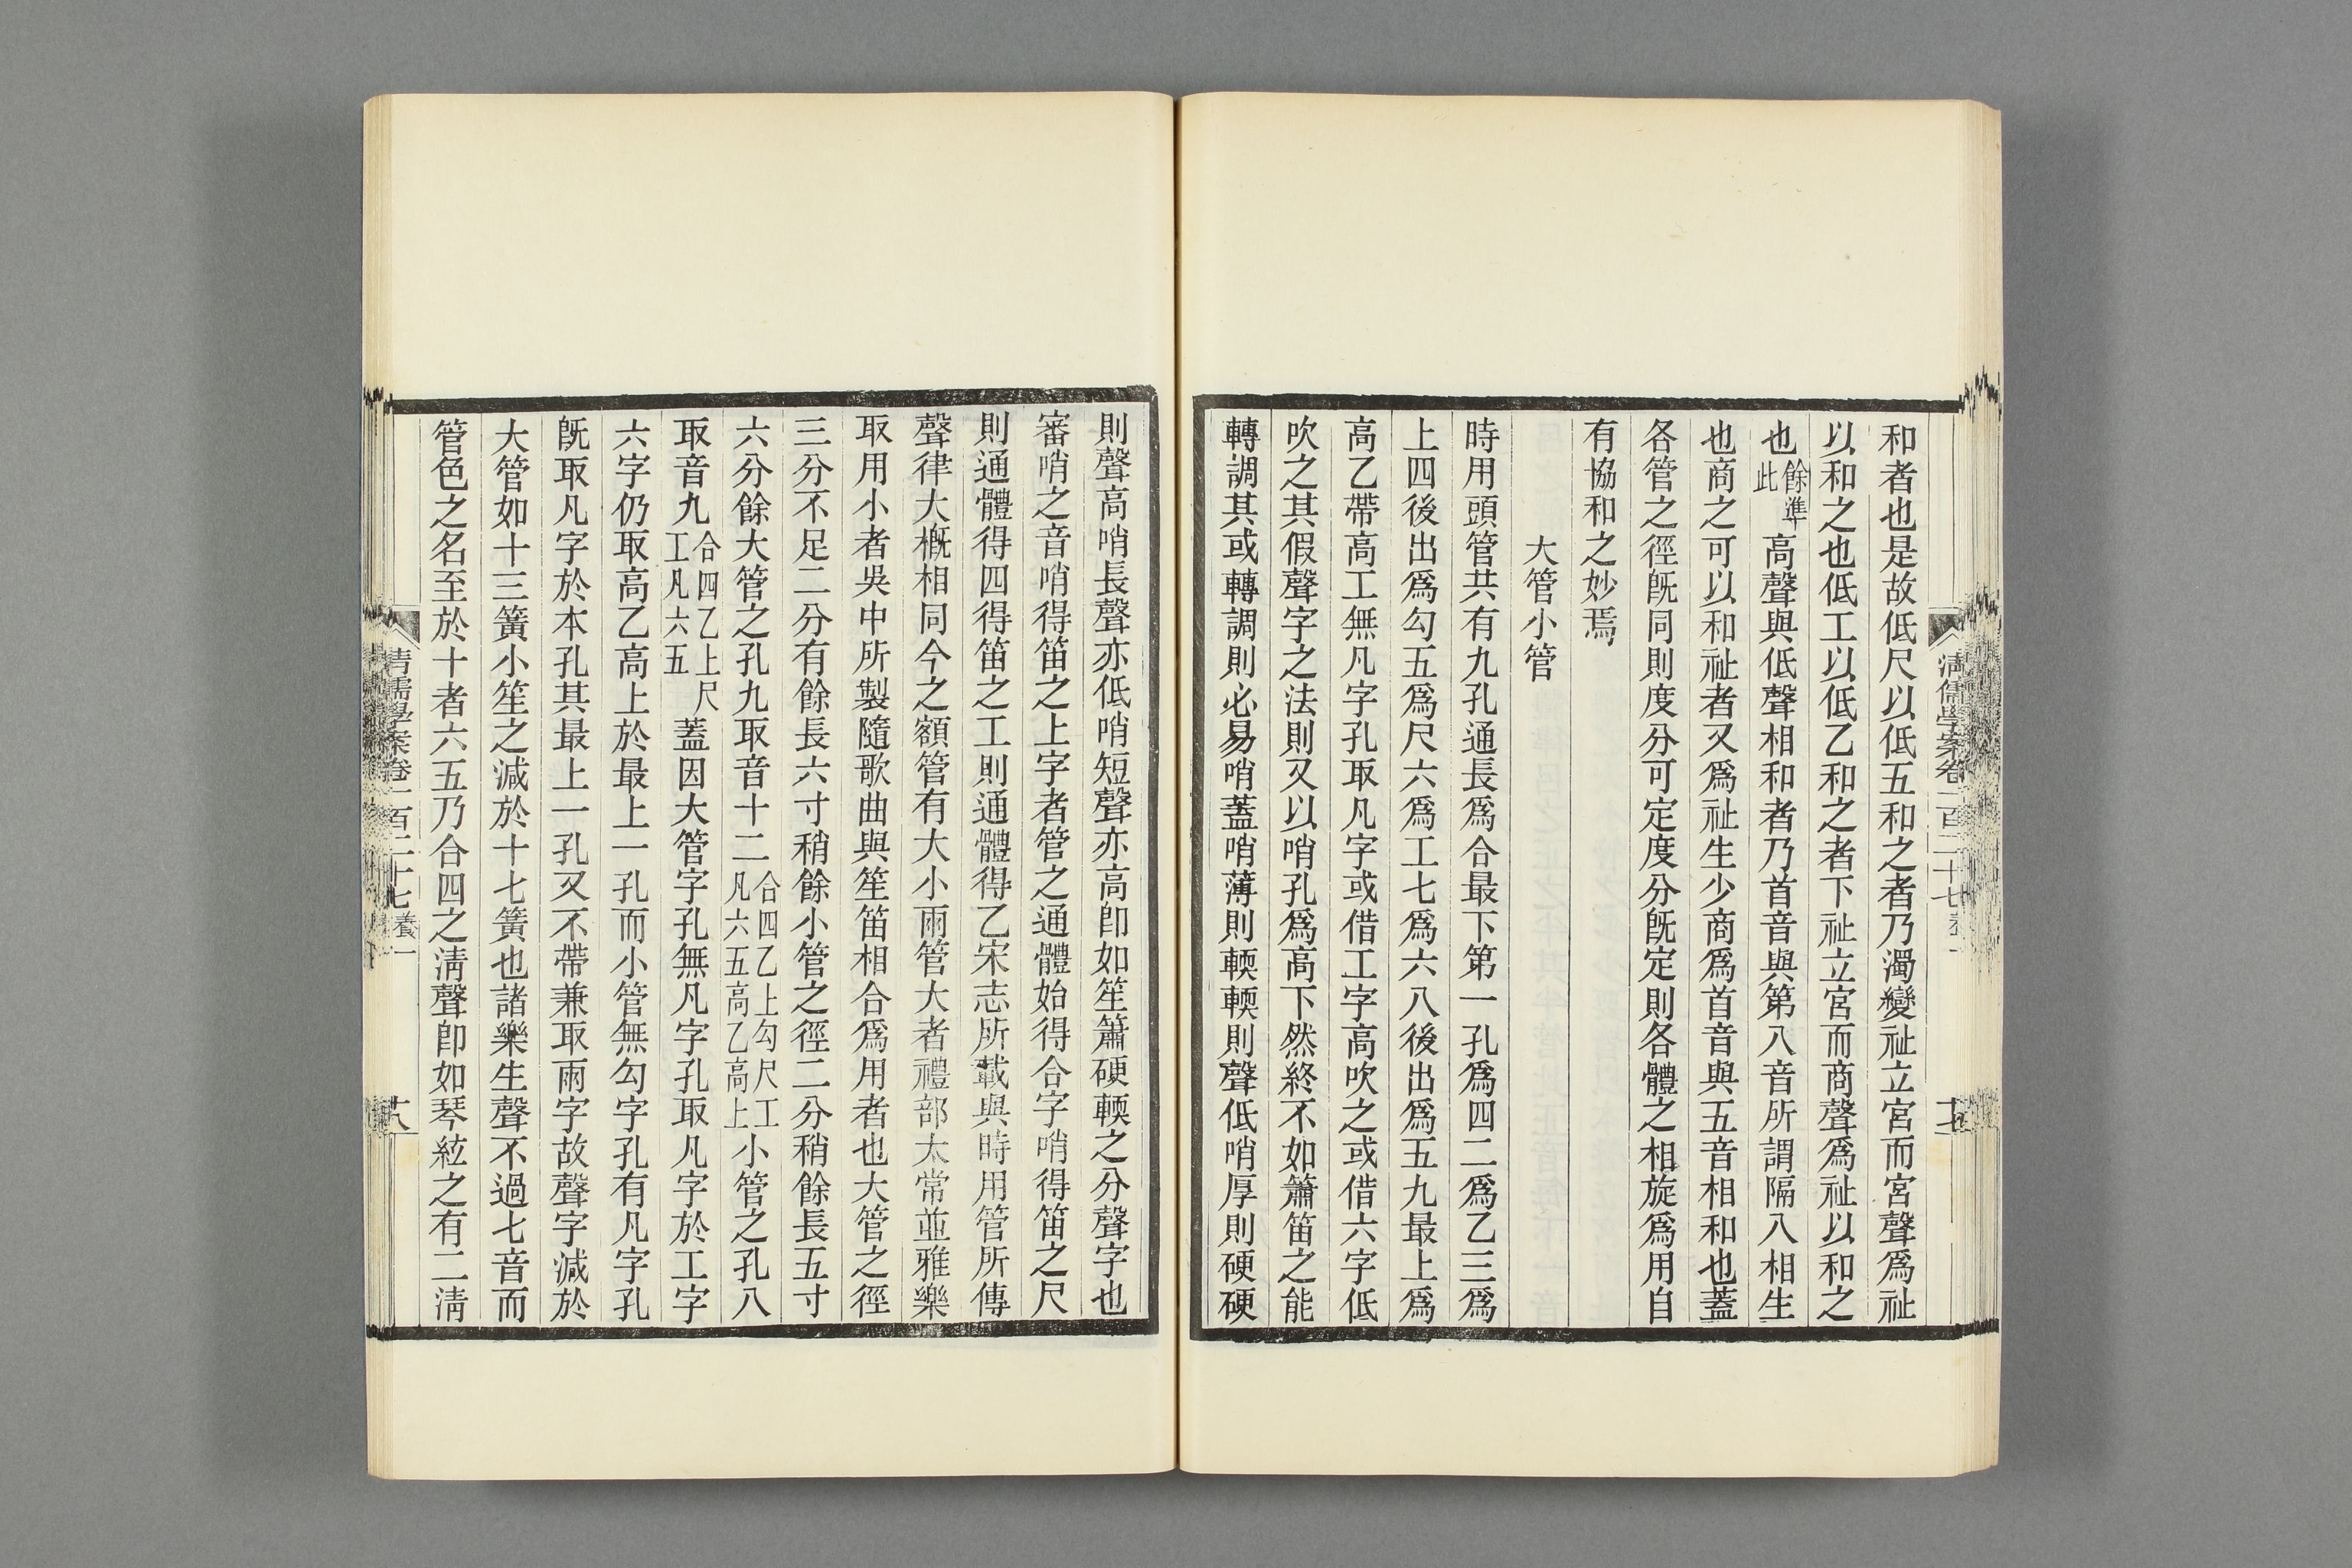 和者也是故低尺以低五和之者乃濁變祉立宮而宮聲爲祉
以和之也低工以低乙和之者下祉立宮而商聲爲祉以和之
也餘準此高聲與低聲相和者乃首音與第八音所謂隔八相生
也商之可以和祉者又爲祉生少商爲首音與五音相和也蓋
各管之徑旣同則度分可定度分旣定則各體之相旋爲用自
有協和之妙焉
大管小管
時用頭管共有九孔通長爲合最下第一孔爲四二爲乙三爲
上四後出爲勾五爲尺六爲工七爲六八後出爲五九最上爲
高乙帶高工無凡字孔取凡字或借工字高吹之或借六字低
吹之其假聲字之法則又以哨孔爲高下然終不如簫笛之能
轉調其或轉調則必易哨蓋哨薄則輭輭則聲低哨厚則硬硬
則聲高哨長聲亦低哨短聲亦高卽如笙簫硬輭之分聲字也
審哨之音哨得笛之上字者管之通體始得合字哨得笛之尺
則通體得四得笛之工則通體得乙宋志所載與時用管所傳
聲律大槪相同今之頟管有大小兩管大者禮部太常並雅樂
取用小者吳中所製隨歌曲與笙笛相合爲用者也大管之徑
三分不足二分有餘長六寸稍餘小管之徑二分稍餘長五寸
六分餘大管之孔九取音十二合四乙上勾尺工凡六五高乙高上小管之孔八
取音九合四乙上尺工凡六五蓋因大管字孔無凡字孔取凡字於工字
六字仍取高乙高上於最上一孔而小管無勾字孔有凡字孔
旣取凡字於本孔其最上一孔又不帶兼取兩字故聲字減於
大管如十三簧小笙之減於十七簧也諸樂生聲不過七音而
管色之名至於十者六五乃合四之淸聲卽如琴絃之有二淸
淸儒學案卷二百二十七 養一
十七
淸儒學案卷二百二十七 養一
十八